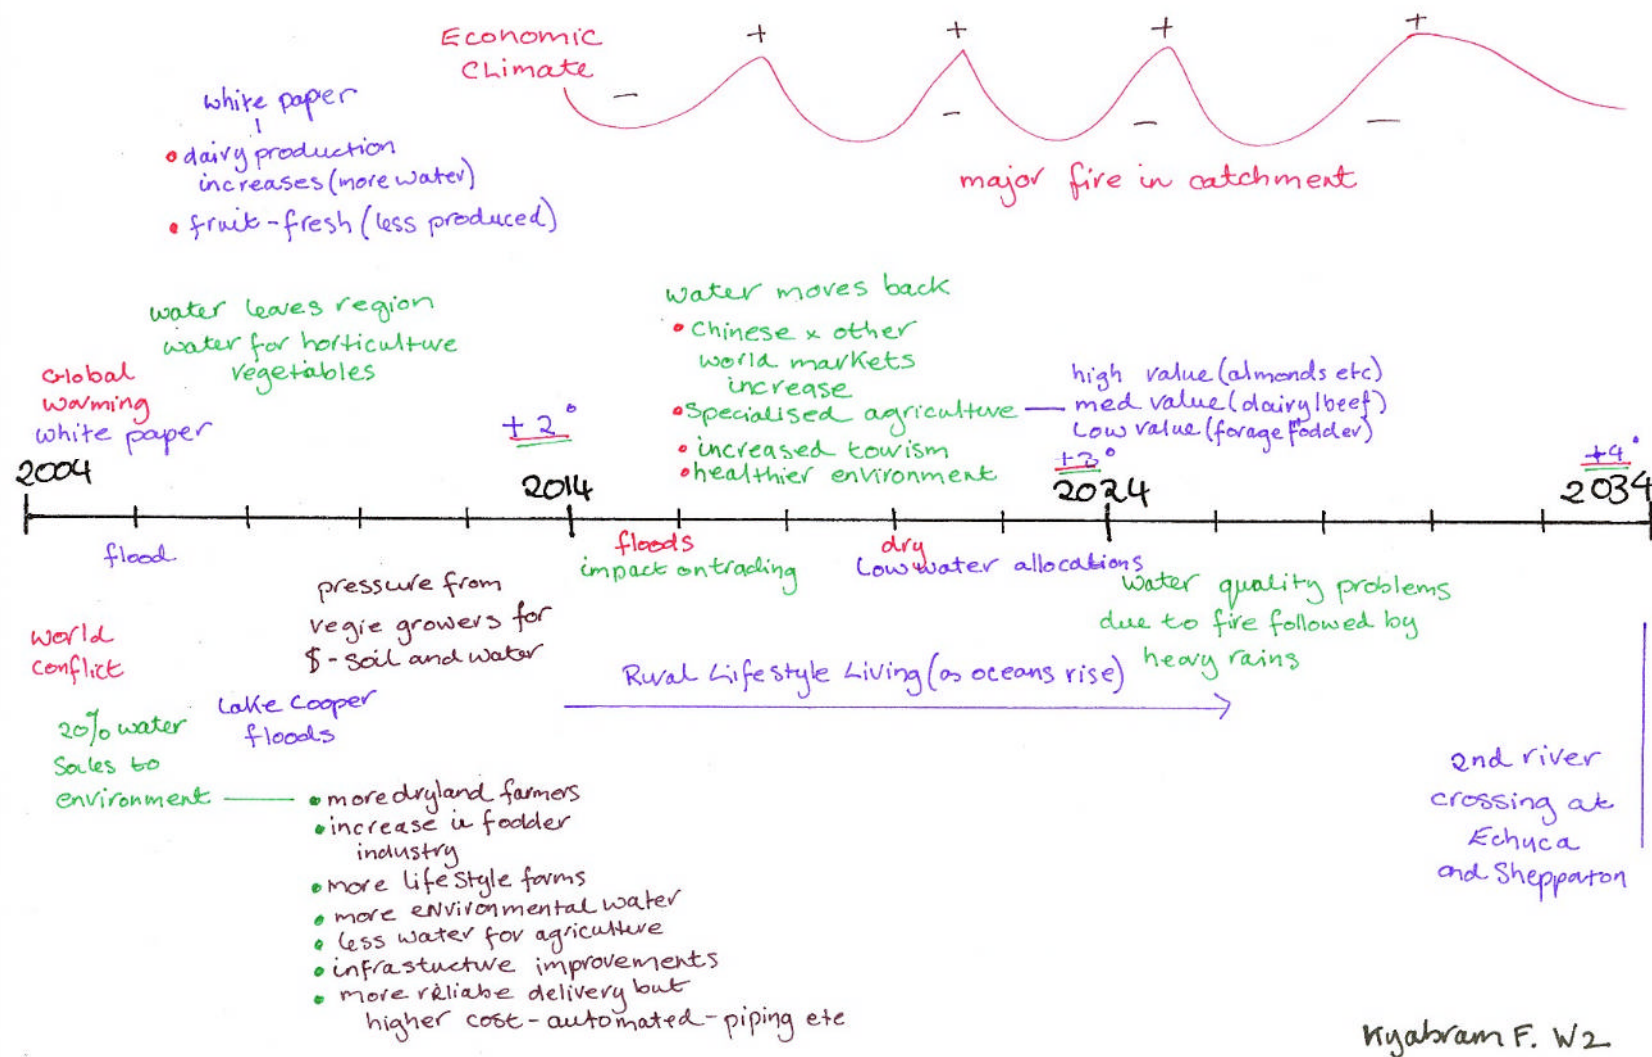 Economic
Climate
+
+
+
+
–
–
–
–
major fire in catchment
white paper
dairy production
increases (more water)
fruit - fresh (less produced)
water leaves region
water for horticulture
vegetables
Global
warming
white paper
+2°
water moves back
Chinese x other
world markets
increase
Specialised agriculture
increased tourism
healthier environment
high value (almonds etc)
med value (dairy/beef)
Low value (forage fodder)
+3°
+4°
2004
2014
2024
2034
flood
floods
impact on trading
dry
Low water allocations
pressure from
vegie growers for
$ - soil and water
water quality problems
due to fire followed by
heavy rains
world
conflict
Rural Lifestyle Living (as oceans rise)
Lake Cooper
floods
20% water
Sales to
environment
more dryland farmers
increase in fodder
industry
more lifestyle farms
more environmental water
less water for agriculture
infrastucture improvements
more reliabe delivery but
higher cost - automated - piping etc
2nd river
crossing at
Echuca
and Shepparton
Kyabram F. W2